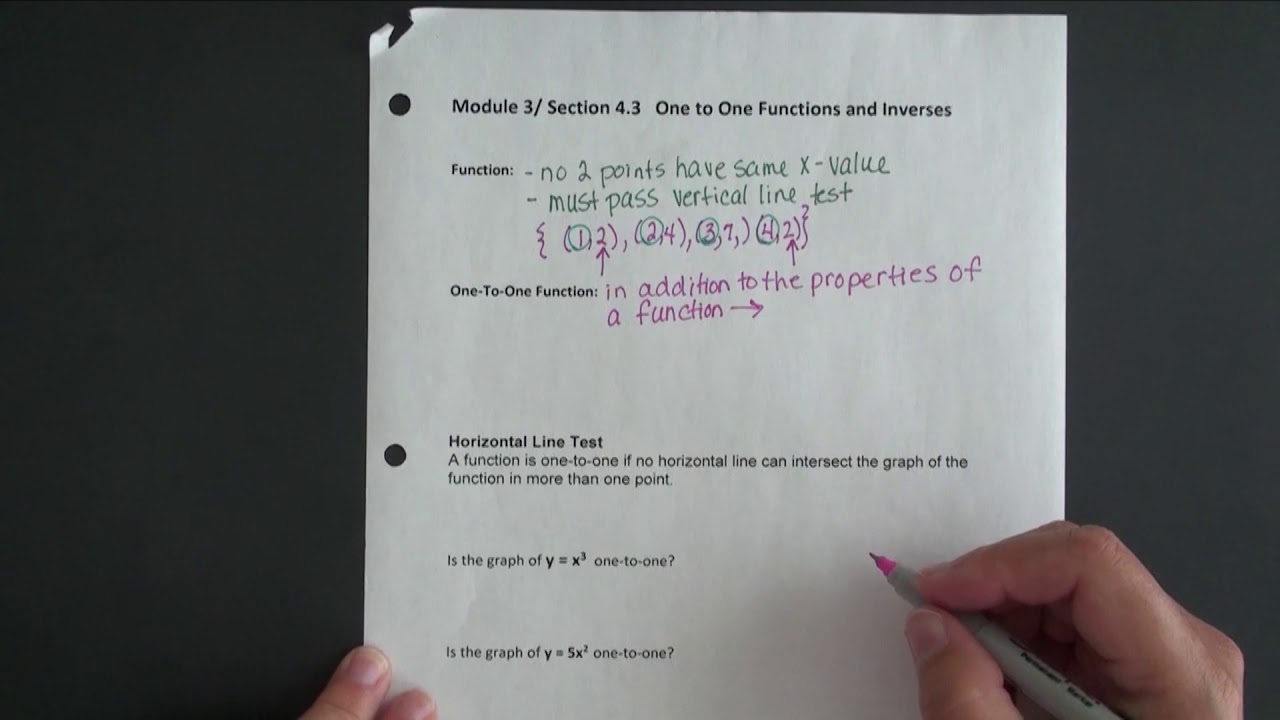 Module 3/ Section 4.3 One to One Functions and Inverses
Function: - no 2 points have same x-value
- must pass vertical line test
{ (1,2), (2,4), (3,7,) (4,2)}
One-To-One Function: in addition to the properties of
a function →
Horizontal Line Test
A function is one-to-one if no horizontal line can intersect the graph of the
function in more than one point.
Is the graph of y = x³ one-to-one?
Is the graph of y = 5x² one-to-one?